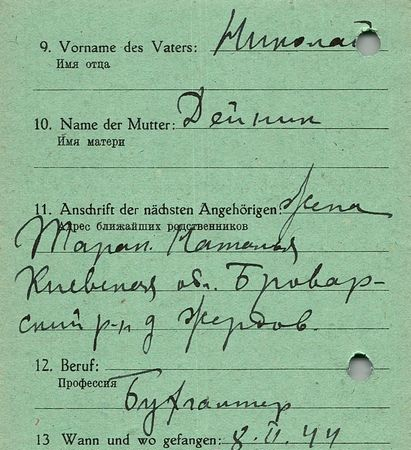 9. Vorname des Vaters: Николай
Имя отца
10. Name der Mutter: Дейник
Имя матери
11. Anschrift der nächsten Angehörigen: жена
Адрес ближайших родственников
Таран Наталья
Киевская обл. Бровар-
ский р-н д Жердов.
12. Beruf:
Профессия
Бухгалтер
13 Wann und wo gefangen: 8.II.44